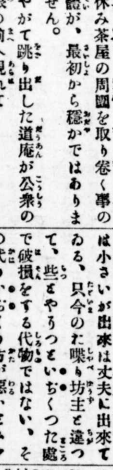 休み茶屋の周圍を取り卷く事の
體が、最初から穩かではありま
せん。
やがて跳り出した道庵が公衆の
は小さいが出來は丈夫に出來て
ゐる、只今のお喋り坊主と違つ
て、些とやそつといぢくつた處
で破損をする代物ではない、そ